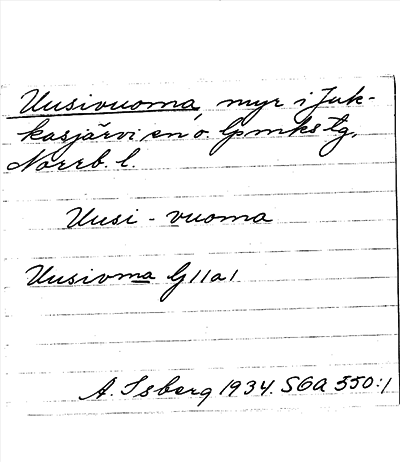 Uusivuoma, myr i Juk-
kasjärvi sn o. lpmkstg,
Norrb. l.
Uusi - vuoma
Uusivma G 11 a 1
A. Isberg 1934. SGA 550:1